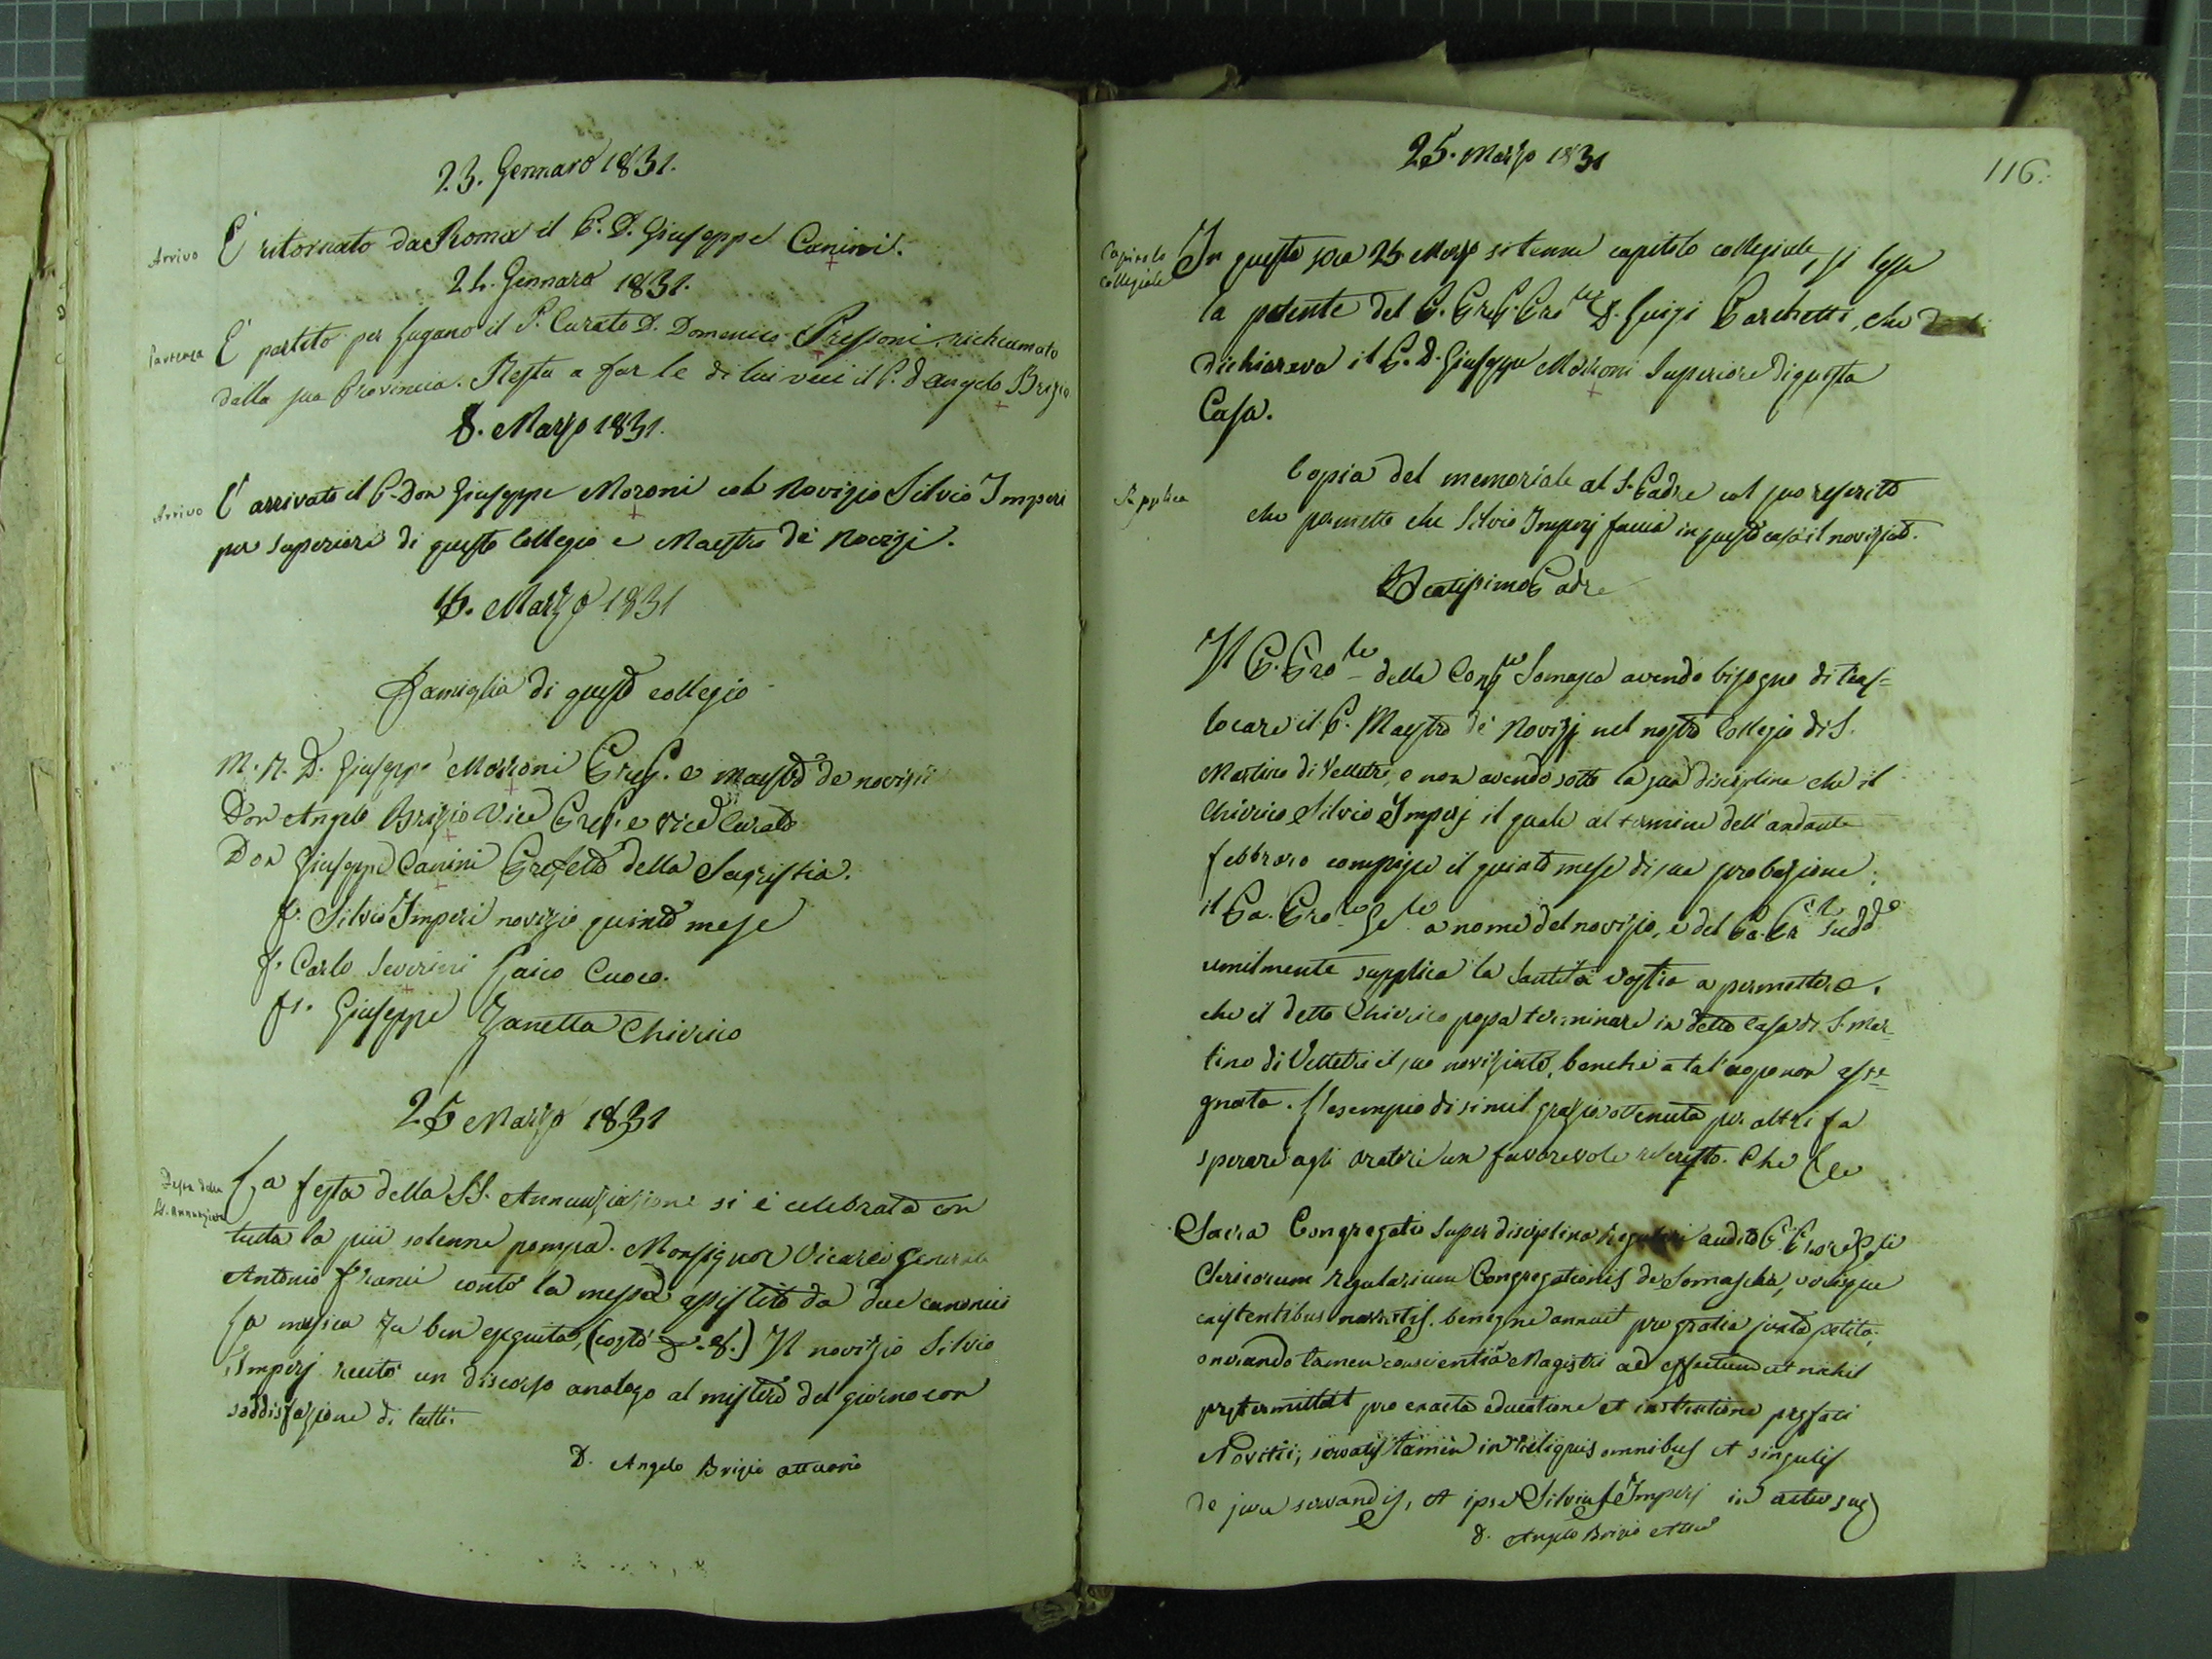 23. Gennaro 1831.
Arrivo È ritornato da Roma il P. D. Giuseppe Canini.
24. Gennaro 1831.
Partenza È partito per Lugano il P. Curato D. Domenico Pressoni richiamato
dalla sua Provincia. Resta a far le di lui veci il P. D Angelo Brizio
8. Marzo 1831.
Arrivo È arrivato il P. Don Giuseppe Moroni col Novizio Silvio Imperi
per superiore di questo Collegio e Maestro de Novizj.
16. Marzo 1831
Famiglia di questo collegio
M. R. D. Giuseppe Moroni Prep. e maestro de novizii
Don Angelo Brizio Vice Prep. e vice Curato
Don Giuseppe Canini Prefetto della Sagristia.
f. Silvio Imperi novizio quinto mese
f. Carlo Severini Laico Cuoco.
fr. Giuseppe Zanetta Chierico
25 Marzo 1831
Festa della SS. Annunziata
La festa della SS. Annunziazione si è celebrata con
tutta la più solenne pompa. Monsignor Vicario Generale
Antonio cantò la messa assistito da due canonici
La musica fu ben eseguita, (costò 8.) Il novizio Silvio
Imperj recitò un discorso analogo al mistero del giorno con
soddisfazione di tutti.
D. Angelo Brizio attuario
116.
25. Marzo 1831
Capitolo collegiale
In questa sera 25 Marzo si tenne capitolo collegiale, si lesse
la patente del P. Prep. Pro.le D. Luigi Parchetti, che
dichiarava il P. D. Giuseppe Moroni Superiore di questa
Casa.
Supplica
Copia del memoriale al S. Padre col suo rescritto
che permette che Silvio Imperj faccia in questa casa il noviziato.
Beatissimo Padre
Il P. Pro.le della Cong.ne Somasca avendo bisogno di tras=
locare il P. Maestro de' Novizj nel nostro Collegio di S.
Martino di Velletri, e non avendo sotto la sua disciplina che il
Chierico Silvio Imperj il quale al termine dell'andante
febbraro compisce il quinto mese di sua probazione;
il Pa. Pro.le a nome del novizio, e del Pa. sudd.o
umilmente supplica la Santità vostra a permettere,
che il detto Chierico possa terminare in detta Casa di S. Mar=
tino di Velletri il suo noviziato, benchè a tal uopo non asse=
gnata. L'esempio di simil grazia ottenuta per altri fa
sperare agli oratori un favorevole rescritto. Che
Sacra Congregatio super disciplina regulari audito P. Proc. Gli
Clericorum Regularium Congregationis de Somascha,
existentibus narratis. benigne annuit pro gratia juxta petita,
onerando tamen conscientia Magistri ad effectum ut nihil
prætermittat pro exacta educatione et institutione præfati
Novitii; servatis tamen in reliquis omnibus et singulis
de jure servandis, et ipse Silvius Imperj in
D. Angelo Brizio Att.o